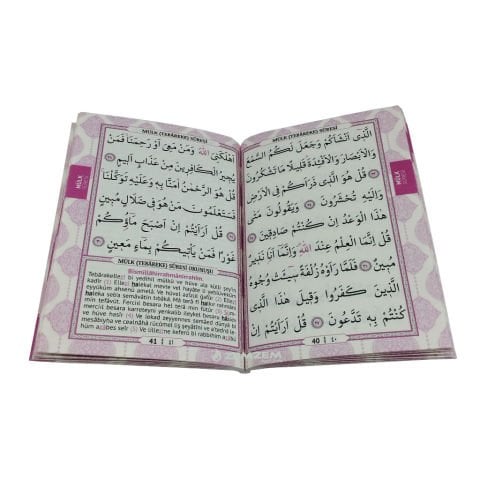 MÜLK (TEBÂREKE) SÛRESİ
الَّذِٓي اَنْشَاَكُمْ وَجَعَلَ لَكُمُ السَّمْعَ
وَالْاَبْصَارَ وَالْاَفْئِدَةَ قَلِيلًا مَا تَشْكُرُونَ
قُلْ هُوَ الَّذِي ذَرَاَكُمْ فِي الْاَرْضِ
وَاِلَيْهِ تُحْشَرُونَ وَيَقُولُونَ مَتٰى
هٰذَا الْوَعْدُ اِنْ كُنْتُمْ صَادِقِينَ
قُلْ اِنَّمَا الْعِلْمُ عِنْدَ اللّٰهِ وَاِنَّمَٓا اَنَا نَذِيرٌ
مُبِينٌ فَلَمَّا رَاَوْهُ زُلْفَةً سِٓيـَٔتْ وُجُوهُ
الَّذِينَ كَفَرُوا وَقِيلَ هٰذَا الَّذِي
كُنْتُمْ بِهِ تَدَّعُونَ قُلْ اَرَاَيْتُمْ اِنْ
40 ٤٠
MÜLK
SÛRESİ
MÜLK (TEBÂREKE) SÛRESİ
اَهْلَكَنِيَ اللّٰهُ وَمَنْ مَعِيَ اَوْ رَحِمَنَا فَمَنْ
يُجِيرُ الْكَافِرِينَ مِنْ عَذَابٍ اَلِيمٍ
قُلْ هُوَ الرَّحْمٰنُ اٰمَنَّا بِهِ وَعَلَيْهِ تَوَكَّلْنَا
فَسَتَعْلَمُونَ مَنْ هُوَ فِي ضَلَالٍ مُبِينٍ
قُلْ اَرَاَيْتُمْ اِنْ اَصْبَحَ مَٓاؤُ۬كُمْ
غَوْرًا فَمَنْ يَأْتِيكُمْ بِمَٓاءٍ مَعِينٍ
MÜLK (TEBÂREKE) SÛRESİ OKUNUŞU
Bismillâhirrahmânirrahîm.
41 ٤١
MÜLK
SÛRESİ
ZEMZEM